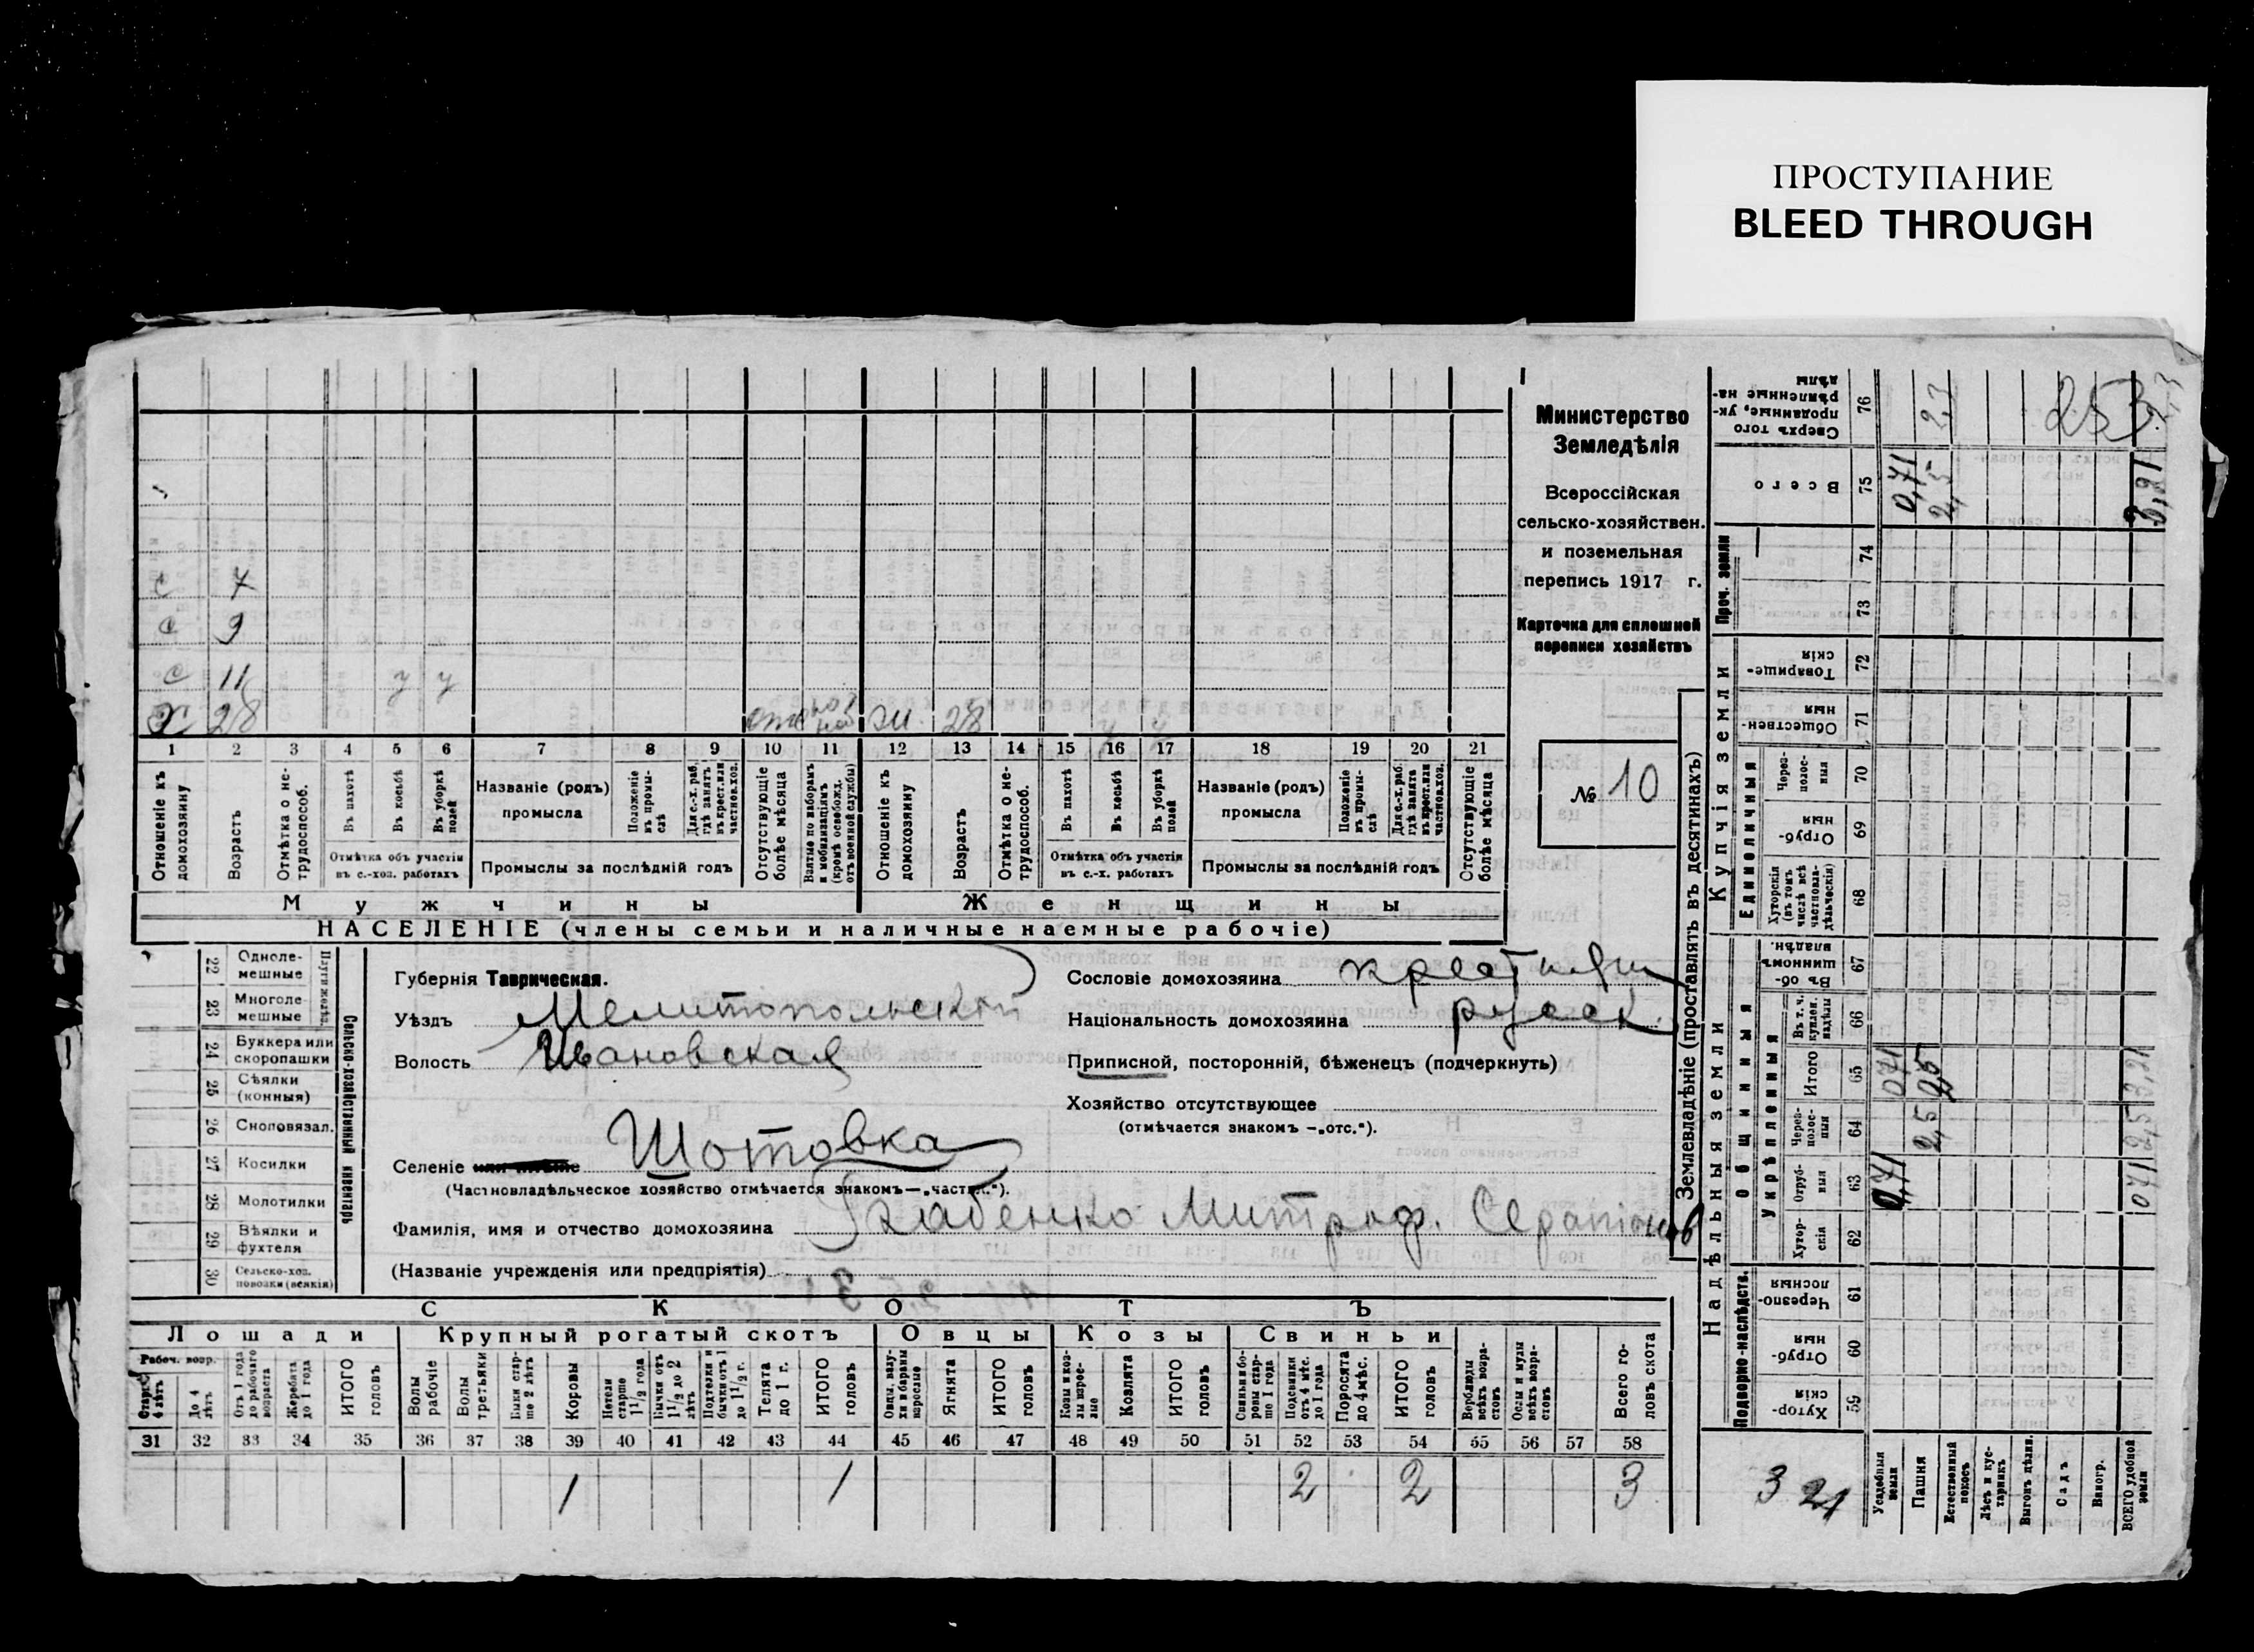 ПРОСТУПАНИЕ
BLEED THROUGH
Министерство
Земледѣлія
Всероссійская
сельско-хозяйствен.
и поземельная
перепись 1917 г.
Карточка для сплошной
переписи хозяйствъ
№ 10
с 7
с 9
с 11 у у
х 28 28
1 2 3 4 5 6 7 8 9 10 11 12 13 14 15 16 17 18 19 20 21
Отношеніе къ домохозяину
Возрастъ
Отмѣтка о не-трудоспособ.
Въ пахотѣ
Въ косьбѣ
Въ уборкѣ полей
Отмѣтка объ участіи въ с.-хоз. работахъ
Названіе (родъ) промысла
Положеніе въ промы-слѣ
Для с.-х. раб. гдѣ занятъ въ крест. или частн. хоз.
Промыслы за послѣдній годъ
Отсутствующіе болѣе мѣсяца
Взятые по наборамъ и мобилизаціямъ (кромѣ освобожд. отъ военной службы)
Отношеніе къ домохозяину
Возрастъ
Отмѣтка о не-трудоспособ.
Въ пахотѣ
Въ косьбѣ
Въ уборкѣ полей
Отмѣтка объ участіи въ с.-х. работахъ
Названіе (родъ) промысла
Положеніе въ промы-слѣ
Для с.-х. раб. гдѣ занята въ крест. или частн. хоз.
Промыслы за послѣдній годъ
Отсутствующіе болѣе мѣсяца
Мужчины Женщины
НАСЕЛЕНІЕ (члены семьи и наличные наемные рабочіе)
22 Одноле-мешные
23 Многоле-мешные
24 Буккера или скоропашки
25 Сѣялки (конныя)
26 Сноповязал.
27 Косилки
28 Молотилки
29 Вѣялки и фухтеля
30 Сельско-хоз. повозки (всякія)
Сельско-хозяйственный инвентарь
Губернія Таврическая.
Уѣздъ Мелитопольскій
Волость Ивановская
Селеніе или имѣніе Шотовка
(Частновладѣльческое хозяйство отмѣчается знакомъ—„частн.“).
Фамилія, имя и отчество домохозяина Скабенко Митроф. Серапіонов
(Названіе учрежденія или предпріятія)
Сословіе домохозяина крестьян
Національность домохозяина русск.
Приписной, посторонній, бѣженецъ (подчеркнуть)
Хозяйство отсутствующее
(отмѣчается знакомъ —„отс.“).
СКОТЪ
Лошади Крупный рогатый скотъ Овцы Козы Свиньи
Рабоч. возр.
Старше 4 лѣтъ
До 4 лѣтъ
Отъ 1 года до рабочаго возраста
Жеребята до 1 года
ИТОГО головъ
Волы рабочіе
Волы третьяки
Быки стар-ше 2 лѣтъ
Коровы
Нетели старше 1 1/2 года
Бычки отъ 1 1/2 до 2 лѣтъ
Подтелки и бычки отъ 1 до 1 1/2 г.
Телята до 1 г.
ИТОГО головъ
Овцы, валу-хи и бараны взрослые
Ягнята
ИТОГО головъ
Козы и коз-лы взрос-лые
Козлята
ИТОГО головъ
Свиньи и бо-ровы стар-ше 1 года
Подсвинки отъ 4 мѣс. до 1 года
Поросята до 4 мѣс.
ИТОГО головъ
Верблюды всѣхъ возра-стовъ
Ослы и мулы всѣхъ возра-стовъ
Всего го-ловъ скота
31 32 33 34 35 36 37 38 39 40 41 42 43 44 45 46 47 48 49 50 51 52 53 54 55 56 57 58
1 1 2 2 3
Землевладѣніе (проставлять въ десятинахъ)
Надѣльныя земли
Купчія земли
Проч. земли
Подворно-наслѣдств.
Общинныя
Укрѣпленныя
Единоличныя
Сверхъ того проданные, ук-рѣпленные на-дѣлы 76 2,3
Всего 75 0,71 2,5 3,21
74
73
Товарище-скія 72
Обществен-ныя 71
Через-полос-ныя 70
Отруб-ныя 69
Хуторскія (въ томъ числѣ всѣ частновла-дѣльческія) 68
Въ об-щинномъ владѣн. 67
Въ т. ч. куплен. надѣлы 66
Итого 65 071 2,5 3,21
Через-полос-ныя 64 2,5 2,5
Отруб-ныя 63 0,71 071
Хутор-скія 62
Черезпо-лосныя 61
Отруб-ныя 60
Хутор-скія 59
3 21
Усадебныя земли
Пашня
Естественный покосъ
Лѣсъ и кус-тарникъ
Выгонъ цѣлин.
Садъ
Виногр.
ВСЕГО удобной земли